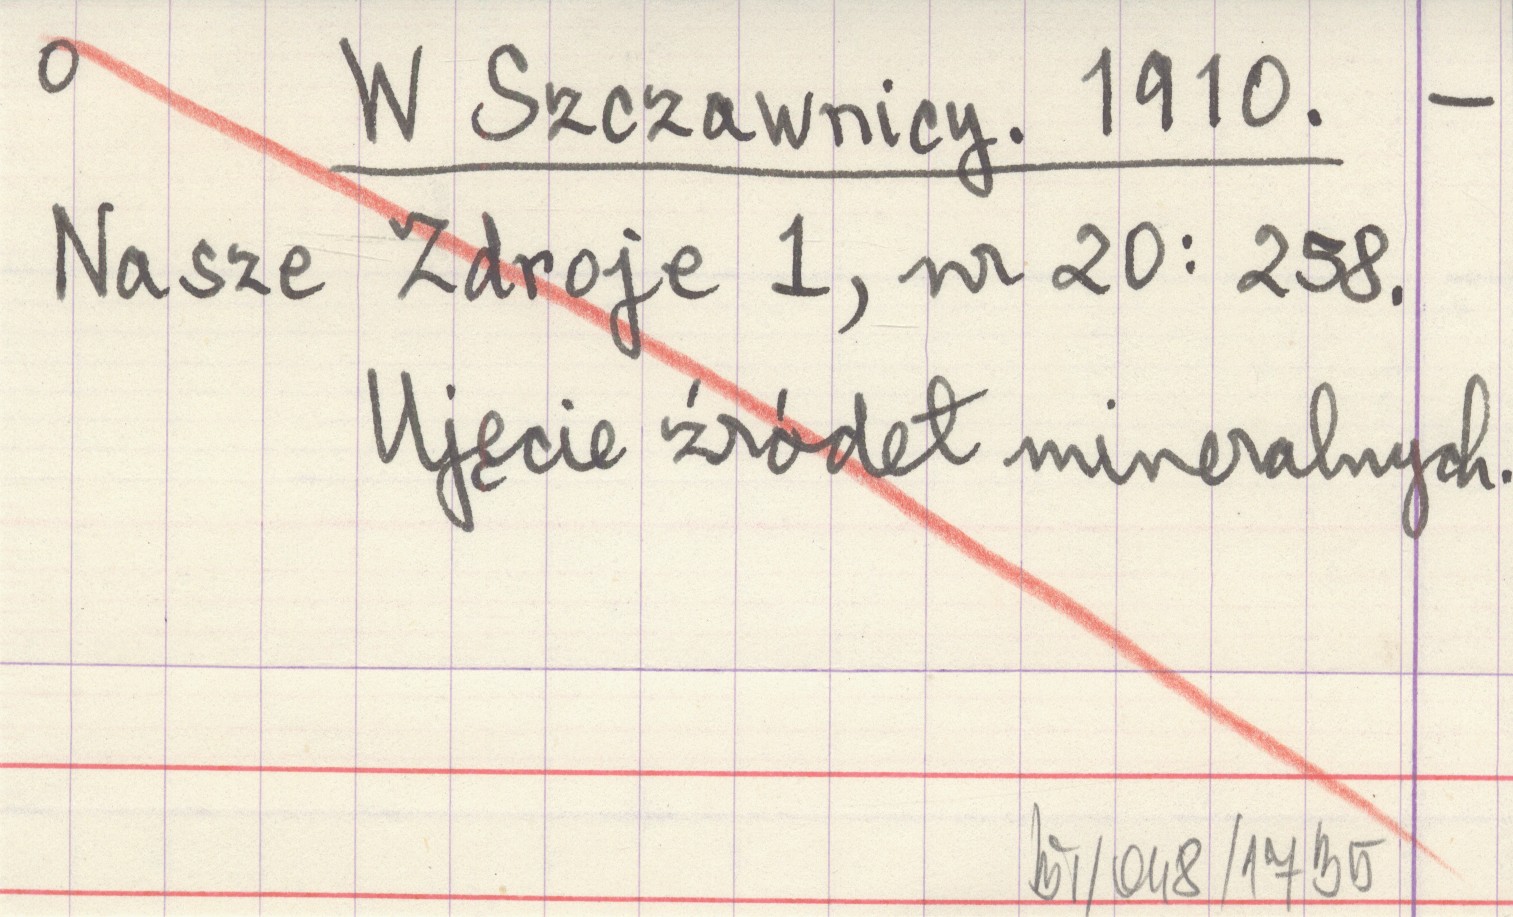 o W Szczawnicy. 1910. —
Nasze Zdroje 1, nr 20: 258.
Ujęcie źródeł mineralnych.
/048/1735